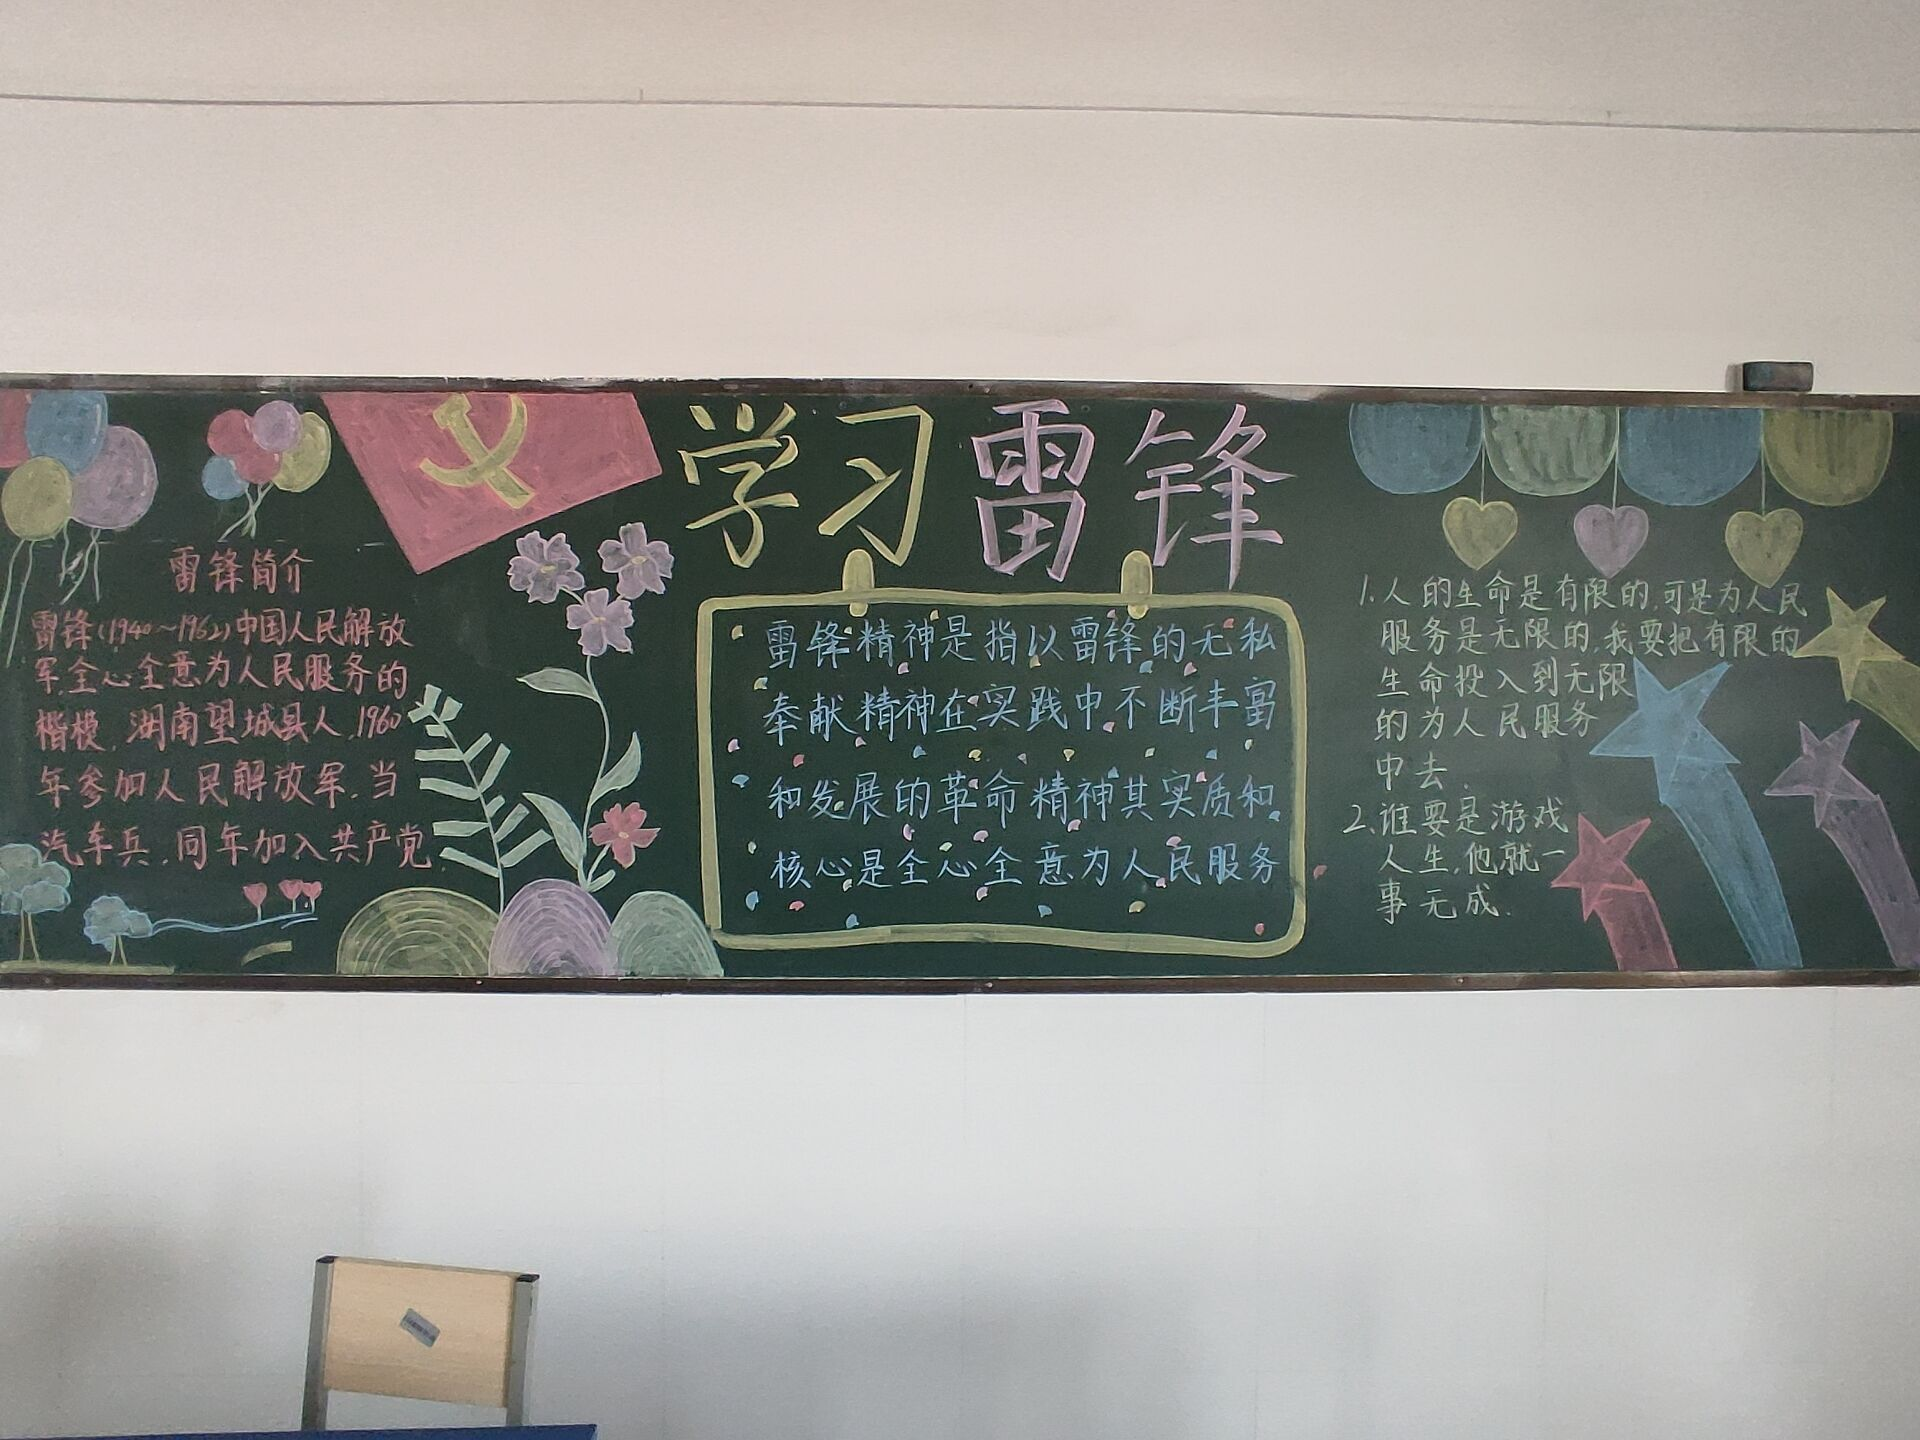 学习雷锋
雷锋简介
雷锋(1940~1962)中国人民解放
军,全心全意为人民服务的
楷模,湖南望城县人,1960
年参加人民解放军,当
汽车兵,同年加入共产党
雷锋精神是指以雷锋的无私
奉献精神在实践中不断丰富
和发展的革命精神其实质和
核心是全心全意为人民服务
1.人的生命是有限的,可是为人民
服务是无限的,我要把有限的
生命投入到无限
的为人民服务
中去.
2.谁要是游戏
人生,他就一
事无成.